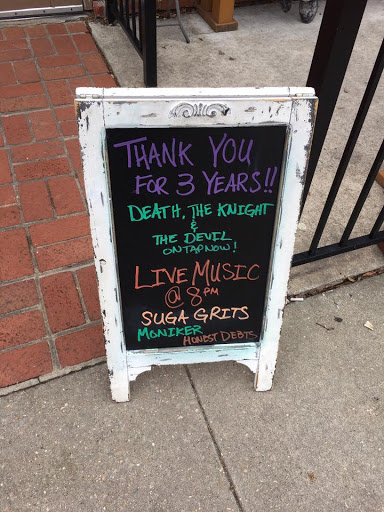 THANK YOU
FOR 3 YEARS!!
DEATH, THE KNIGHT
&
THE DEVIL
ON TAP NOW!
LIVE MUSIC
@ 8PM
SUGA GRITS
MONIKER
HONEST DEBTS